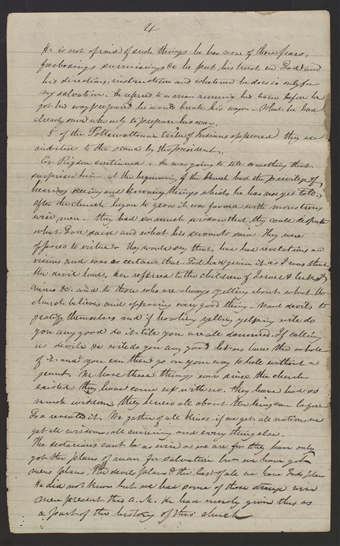 4
He is not afraid of such things he has none of those fears,
forebodings surmisings &c he put his trust in God and
his directions, instructions and whatever he does is only for
my salvation. He refered to a man running his horse before he
got his way prepared he would break his wagon. What he has
already done was only to prepare his way.
5 of the Pottawattamie tribe of Indians appeared they are
invited to the stand by the president.
Er Rigdon continued. He was going to tell something that
surprised him. At the beginning of the church had the privilege of
hearing seeing and knowing things which he has not yet told,
after the church began to grow it was favored with monstrous
wise men. they had so much wisdom that they could dispute
what God said and what his servant said. They were
opposed to virtue & they would say they had revelations and
visions and was as certain that God had given it as I was that
the devil had. He refered to the children of Israel &
and to those who are always yelling about what the
church believes and opposing every good thing. Want devils to
gratify themselves and if howling yelling yelping will do
you any good do it till you are all damned. If calling
us devils &c will do you any good let us have the whole
of it and you can then go on your way to hell without a
grunt. We have these things ever since the church
existed they have come up with us. they have had so
much wisdom they knew all about the kingdom before
God revealed it. We gather of all kinds if we get all nations we
get all wisdom, all cunning and every thing else.
The sectarians cant be as wise as we are for they have only
got the plans of man for salvation but we have got
mens plans, The devils plans & the best of all we have Gods plan
He did not know but we had some of those strange wise
men present this A. M. He had merely given this as
a part of the history of this church